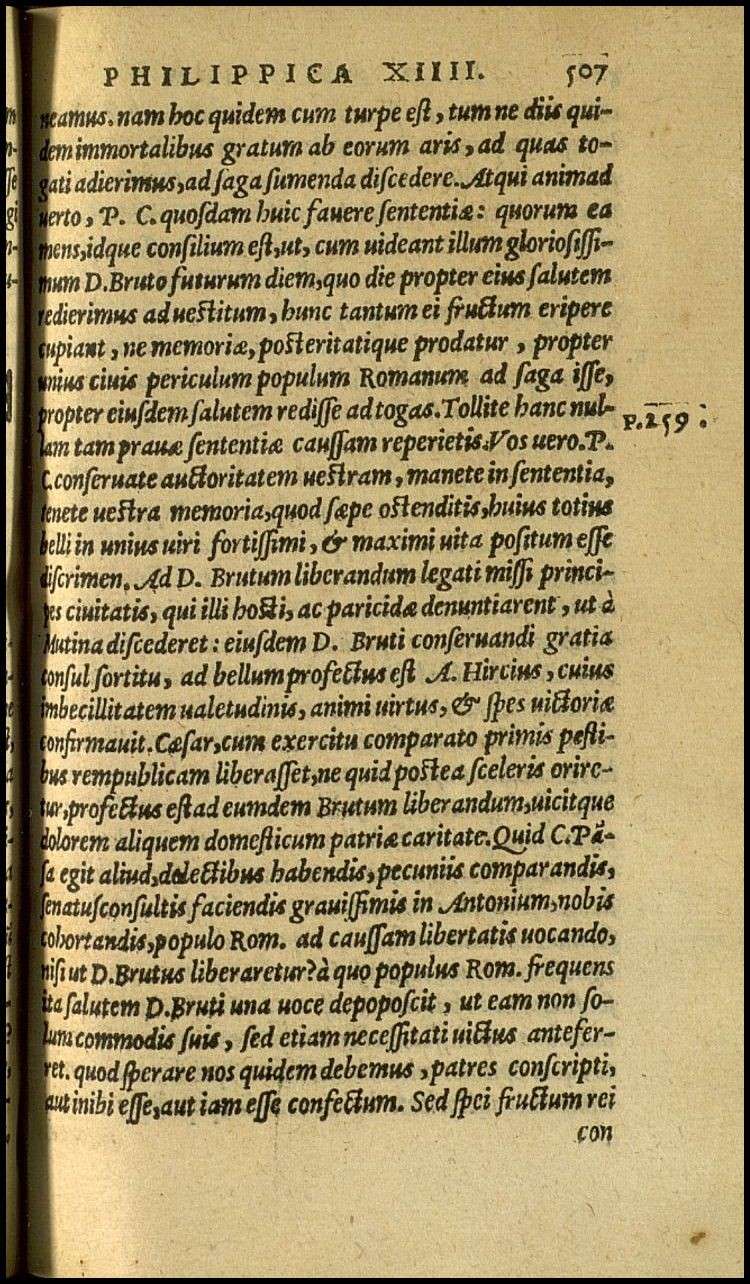 PHILIPPICA XIIII. 507
neamus. nam hoc quidem cum turpe est, tum ne diis qui-
dem immortalibus gratum ab eorum aris, ad quas to-
gati adierimus, ad saga sumenda discedere. Atqui animad
uerto, P. C. quosdam huic fauere sententiæ: quorum ea
mens, idque consilium est, ut, cum uideant illum gloriosissi-
mum D. Bruto futurum diem, quo die propter eius salutem
redierimus ad uestitum, hunc tantum ei fructum eripere
cupiant, ne memoriæ, posteritatique prodatur, propter
unius ciuis periculum populum Romanum ad saga isse,
propter eiusdem salutem redisse ad togas. Tollite hanc nul-
P. 259:
lam tam prauæ sententiæ caussam reperietis. Vos uero. P.
C. conseruate auctoritatem uestram, manete in sententia,
tenete uestra memoria, quod sæpe ostenditis, huius totius
belli in unius uiri fortissimi, & maximi uita positum esse
discrimen. Ad D. Brutum liberandum legati missi princi-
pes ciuitatis, qui illi hosti, ac paricidæ denuntiarent, ut à
Mutina discederet: eiusdem D. Bruti conseruandi gratia
consul sortitu, ad bellum profectus est A. Hircius, cuius
imbecillitatem ualetudinis, animi uirtus, & spes uictoriæ
confirmauit. Cæsar, cum exercitu comparato primis pesti-
bus rempublicam liberasset, ne quid postea sceleris orire-
tur, profectus est ad eumdem Brutum liberandum, uicitque
dolorem aliquem domesticum patriæ caritate. Quid C. Pã-
sa egit aliud, delectibus habendis, pecuniis comparandis,
senatusconsultis faciendis grauissimis in Antonium, nobis
cohortandis, populo Rom. ad caussam libertatis uocando,
nisi ut D. Brutus liberaretur? à quo populus Rom. frequens
ita salutem D. Bruti una uoce depoposcit, ut eam non so-
lum commodis suis, sed etiam necessitati uictus antefer-
ret. quod sperare nos quidem debemus, patres conscripti,
aut inibi esse, aut iam esse confectum. Sed spei fructum rei
con